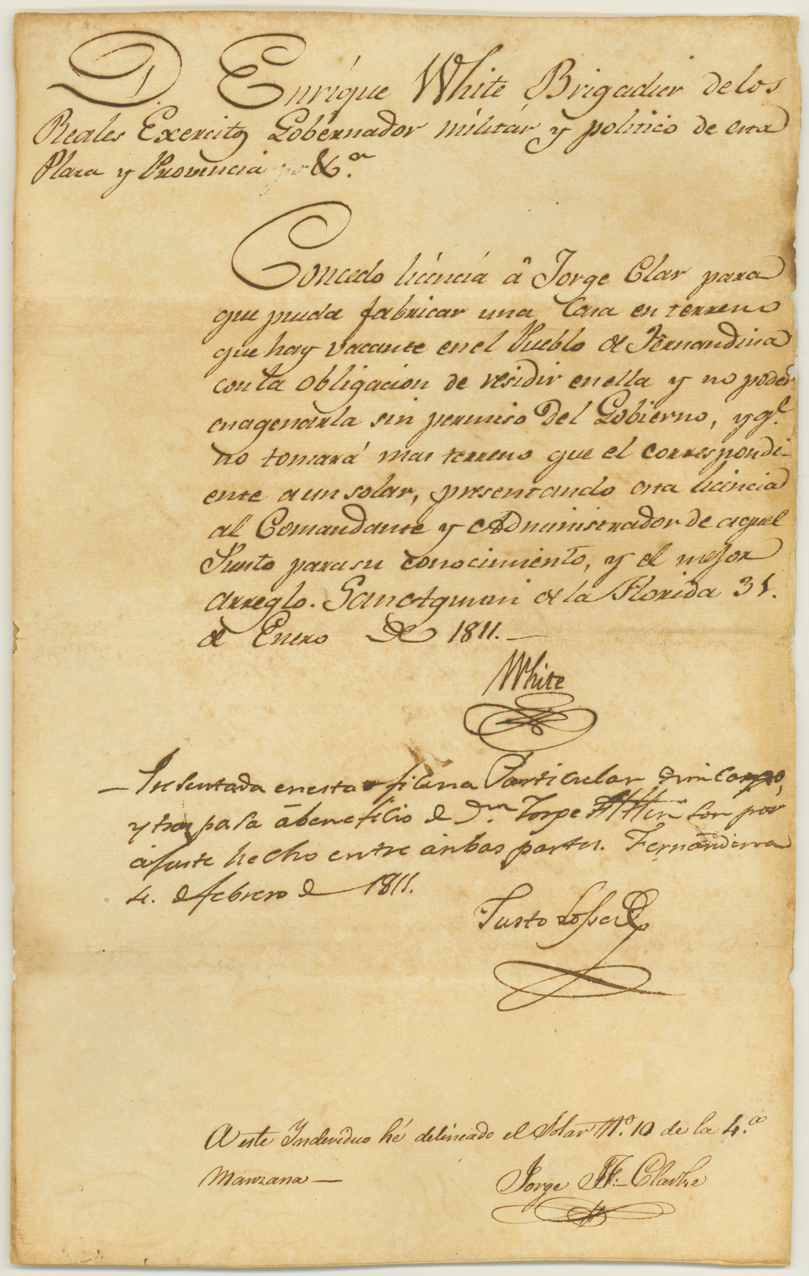 D. Enrique White Brigadier de los
Reales Exercitos Gobernador militár y politico de esta
Plaza y Provincia &ca.
Concedo licéncia â Jorge Clar para
que pueda fabricar una Casa en terreno
que hay vacante en el Pueblo de Fernandina
con la obligacion de residir en ella y no poder
enagenarla sin permiso Del Gobierno, y qe.
no tomará mas terreno que el correspondi-
ente a un solar, presentando esta licencia
al Comandante y Administrador de aquel
Punto para su conocimiento, y el mejor
arreglo. San Agustin de la Florida 31.
de Enero De 1811.—
White
— Presentada en esta oficina Particular de mi cargo,
y traspasa â beneficio de Dn. Jorge por
ajuste hecho entre ambas partes. Fernandina
4. de febrero de 1811.
Justo Lopez
A este Individuo hé delineado el Solar No. 10 de la 4.a
Manzana—
Jorge J. F. Clarke